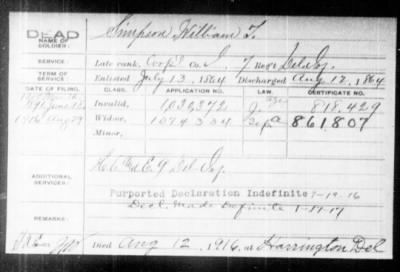 DEAD
NAME OF SOLDIER:
Simpson William T.
SERVICE:
Late rank, Corp'l Co. I, 7 Reg't Del. Inf.
TERM OF SERVICE:
Enlisted July 13, 1864 Discharged Aug 12, 1864
DATE OF FILING. CLASS. APPLICATION NO. LAW. CERTIFICATE NO.
1891 June Invalid, 1036,372 818.429
1916 Aug 29 Widow, 1074334 861,807
Minor,
ADDITIONAL SERVICES:
Del Inf
Purported Declaration Indefinite 9-19-16
Decl. Made Definite 1-17-17
REMARKS:
Died Aug 12, 1916, at Harrington Del